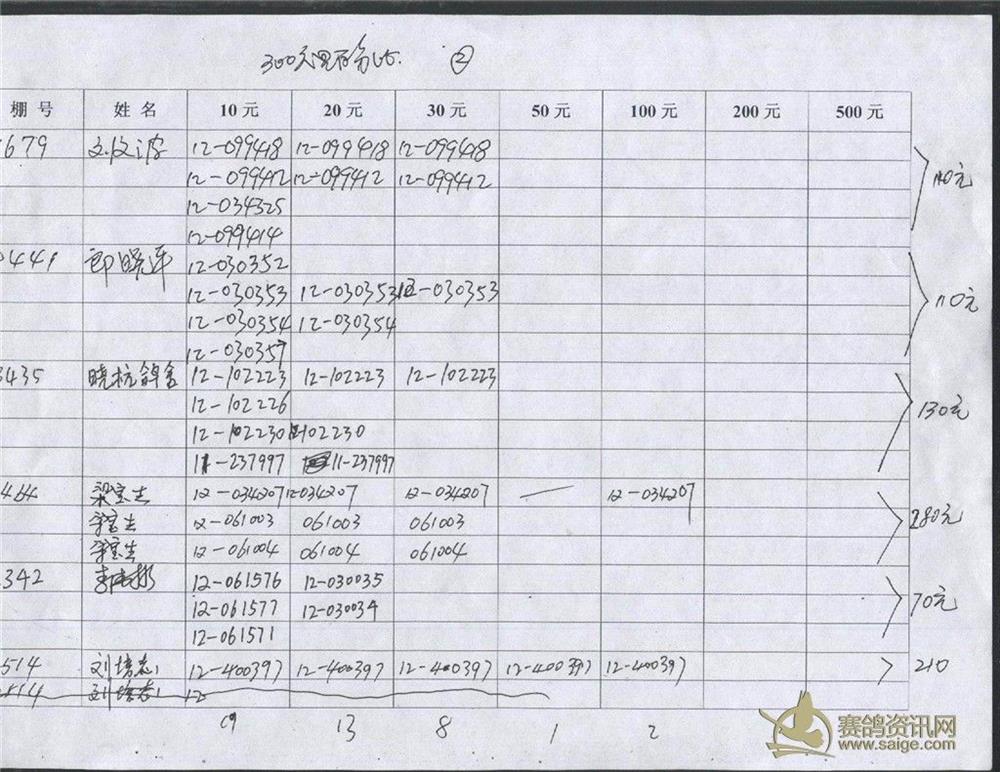 300 ②
棚号 姓名 10元 20元 30元 50元 100元 200元 500元
679 12-099418 12-099418 12-099418
12-099412 12-099412 12-099412 140元
12-034325
12-099414
449 郎晓军 12-030352
12-030353 12-030353 12-030353 110元
12-030354 12-030354
12-030357
3435 晓杭鸽舍 12-102223 12-102223 12-102223
12-102226 130元
12-102230 12-102230
11-237997 11-237997
464 梁宝生 12-034207 12-034207 12-034207 — 12-034207
12-061003 061003 061003 280元
12-061004 061004 061004
342 12-061576 12-030035
12-061577 12-030034 70元
12-061571
514 刘培志 12-400397 12-400397 12-400397 12-400397 12-400397 210
刘培志 12
19 13 8 1 2
赛鸽资讯网
www.saige.com